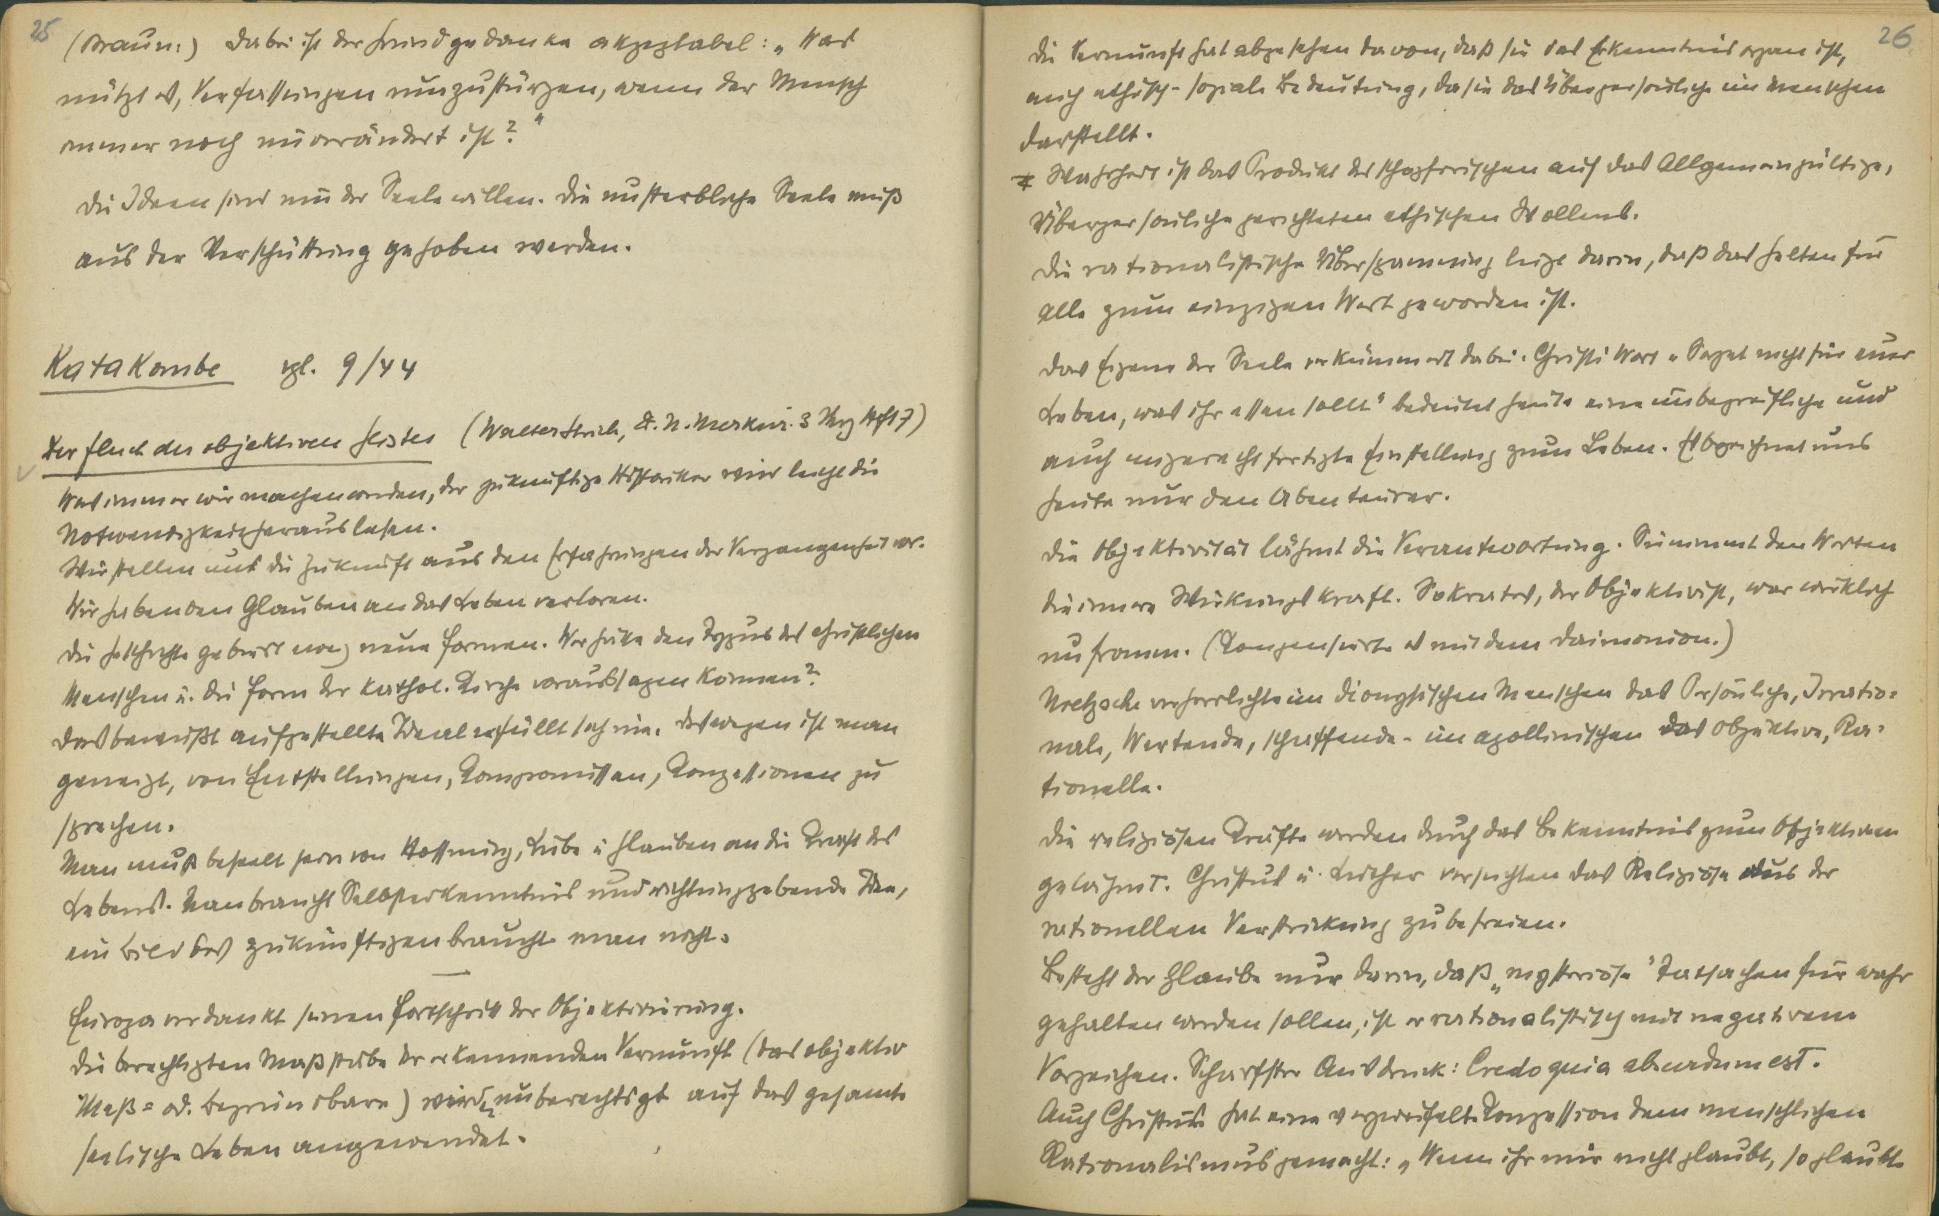 25
(Braun:) Dabei ist der Grundgedanke akzeptabel: „Was
nützt es, Verfassungen umzustürzen, wenn der Mensch
immer noch unverändert ist?"
Die Ideen sind um der Seele willen. Die unsterbliche Seele muß
aus der Verschüttung gehoben werden.
Katakombe vgl. 9/44
Der Fluch des objektiven Geistes (Walter Strich, D. N. Merkur. 3 Jhrg Heft 7)
Was immer wir machen werden, der zukünftige Historiker wird die
Notwendigkeit herauslesen.
Wir stellen uns die Zukunft aus den Erfahrungen der Vergangenheit vor.
Wir haben den Glauben an das Leben verloren.
Die Geschichte gebiert neue Formen. Wer hätte den Typus des christlichen
Menschen u. die Form der kathol. Kirche voraussagen können?
Das bewußt aufgestellte Ideal erfüllt sich nie. Deswegen ist man
geneigt, von Entstellungen, Kompromissen, Konzessionen zu
sprechen.
Man muß beseelt sein von Hoffnung, Liebe u. Glauben an die Kraft des
Lebens. Man braucht Selbsterkenntnis und richtunggebende Idee,
ein Bild des Zukünftigen braucht man nicht.
Europa verdankt seinen Fortschritt der Objektivierung.
Die berechtigten Maßstäbe der erkennenden Vernunft (das objektiv
Meß= od. Begründbare) wird unberechtigt auf das gesamte
seelische Leben angewendet.
26
Die Vernunft hat abgesehen davon, daß sie das Erkenntnisorgan ist,
auch ethisch-soziale Bedeutung, da sie das Überpersönliche im Menschen
darstellt.
* Wahrheit ist das Produkt des schöpferischen auf das Allgemeingültige,
Überpersönliche gerichteten ethischen Wollens.
Die rationalistische Überspannung liegt darin, daß das Gelten für
Alle zum einzigen Wert geworden ist.
Das Eigene der Seele verkümmert dabei. Christi Wort „Sorget nicht für euer
Leben, was ihr essen sollt" bedeutet heute eine unbegreifliche und
auch ungerechtfertigte Einstellung zum Leben. Es bezeichnet uns
heute nur den Abenteurer.
Die Objektivität lähmt die Verantwortung. Sie nimmt den Worten
die innere Wirkungskraft. Sokrates, der Objektivist, war wirklich
unfromm. (Kompensierte es mit dem Daimonion.)
Nietzsche verherrlichte im dionysischen Menschen das Persönliche, Irratio=
nale, Wertende, schaffende - im apollinischen das Objektive, Ra=
tionelle.
Die religiösen Kräfte werden durch das Bekenntnis zum Objektiven
gelähmt. Christus u. Luther versuchten das Religiöse aus der
rationellen Verstrickung zu befreien.
Besteht der Glaube nur darin, daß „mysteriöse" Tatsachen für wahr
gehalten werden sollen, ist er rationalistisch mit negativem
Vorzeichen. Schärfster Ausdruck: Credo quia absurdum est.
Auch Christus hat eine verzweifelte Konzession dem menschlichen
Rationalismus gemacht: „Wenn ihr mir nicht glaubt, so glaubt